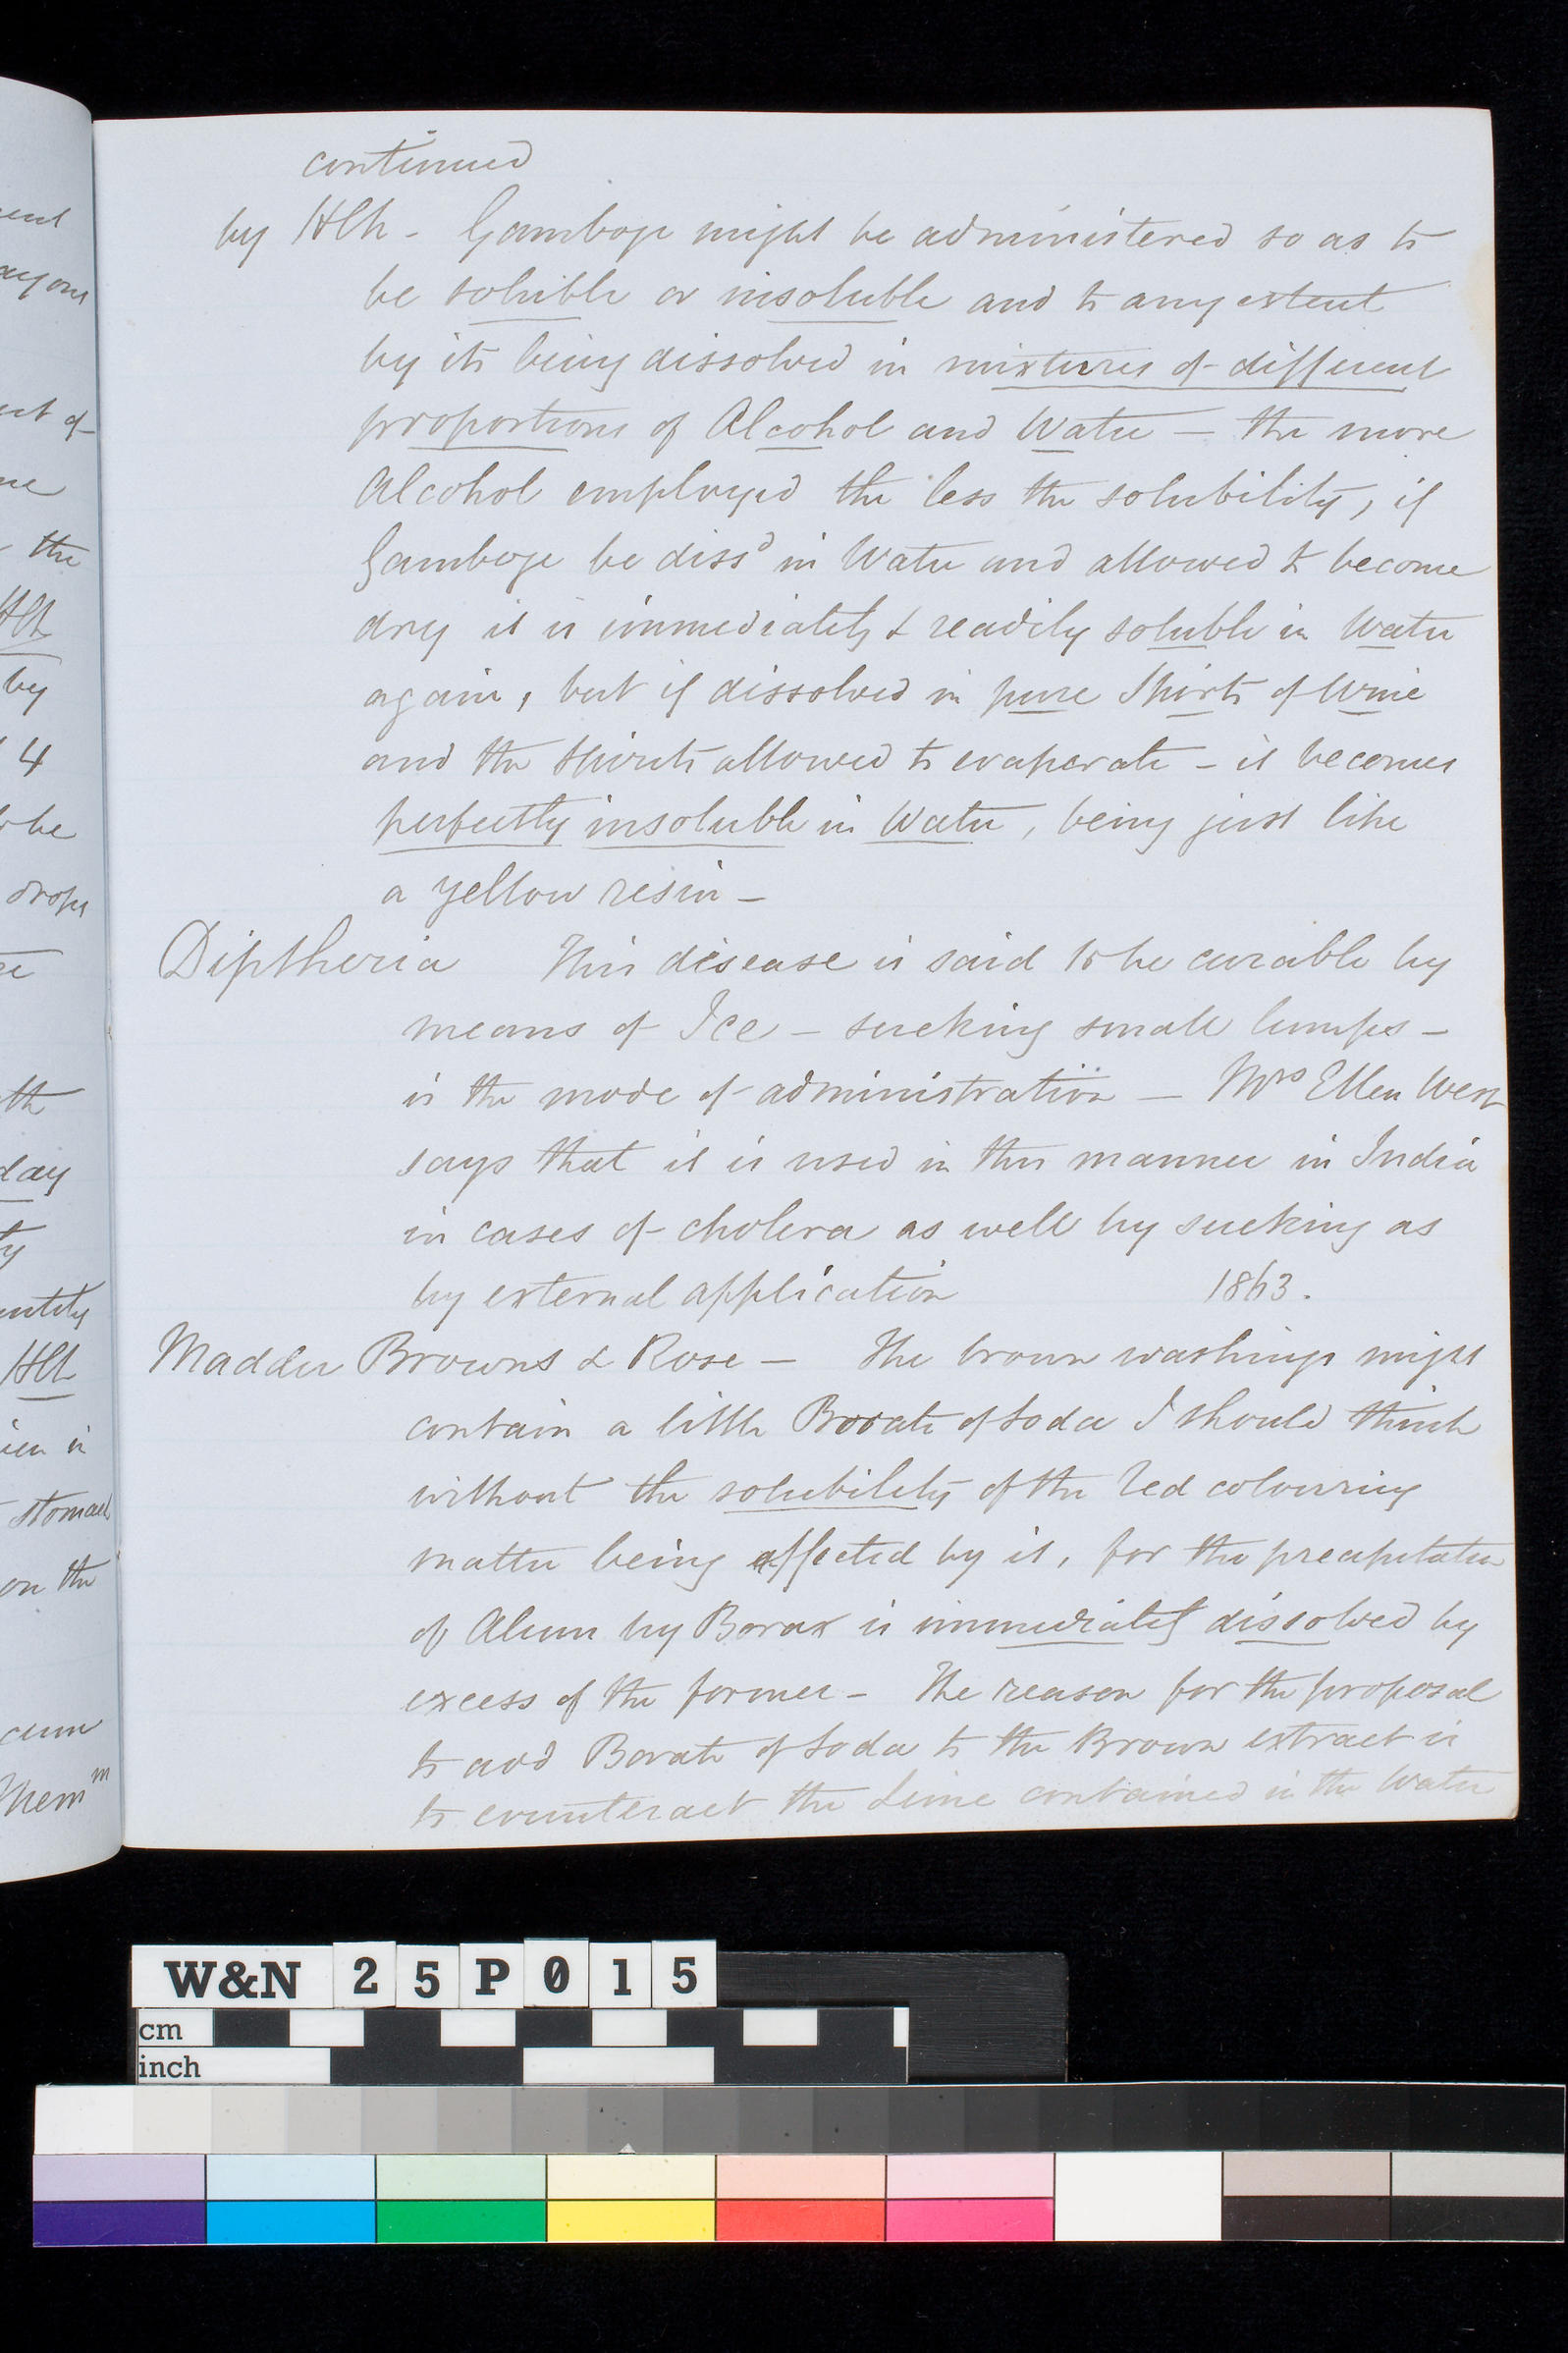 continued
by HCh - Gamboge might be administered so as to
be soluble or insoluble and to any extent
by its being dissolved in mixtures of different
proportions of Alcohol and Water — the more
Alcohol employed the less the solubility, if
Gamboge be dissd in Water and allowed to become
dry it is immediately & readily soluble in Water
again, but if dissolved in pure Spirits of Wine
and the spirits allowed to evaporate - it becomes
perfectly insoluble in Water, being just like
a yellow resin -
Diptheria This disease is said to be curable by
means of Ice - sucking small lumps -
is the mode of administration — Mrs Ellen West
says that it is used in this manner in India
in cases of cholera as well by sucking as
by external application 1863.
Madder Browns & Rose - The brown washings might
contain a little Borate of Soda I should think
without the solubility of the red colouring
matter being affected by it, for the precipitation
of Alum by Borax is immediately dissolved by
excess of the former - The reason for the proposal
to add Borate of Soda to the Brown extract is
to counteract the Lime contained in the Water
ent
of
the
by
4
drops
th
day
ty
stomach
on the
W&N 25P015
cm
inch